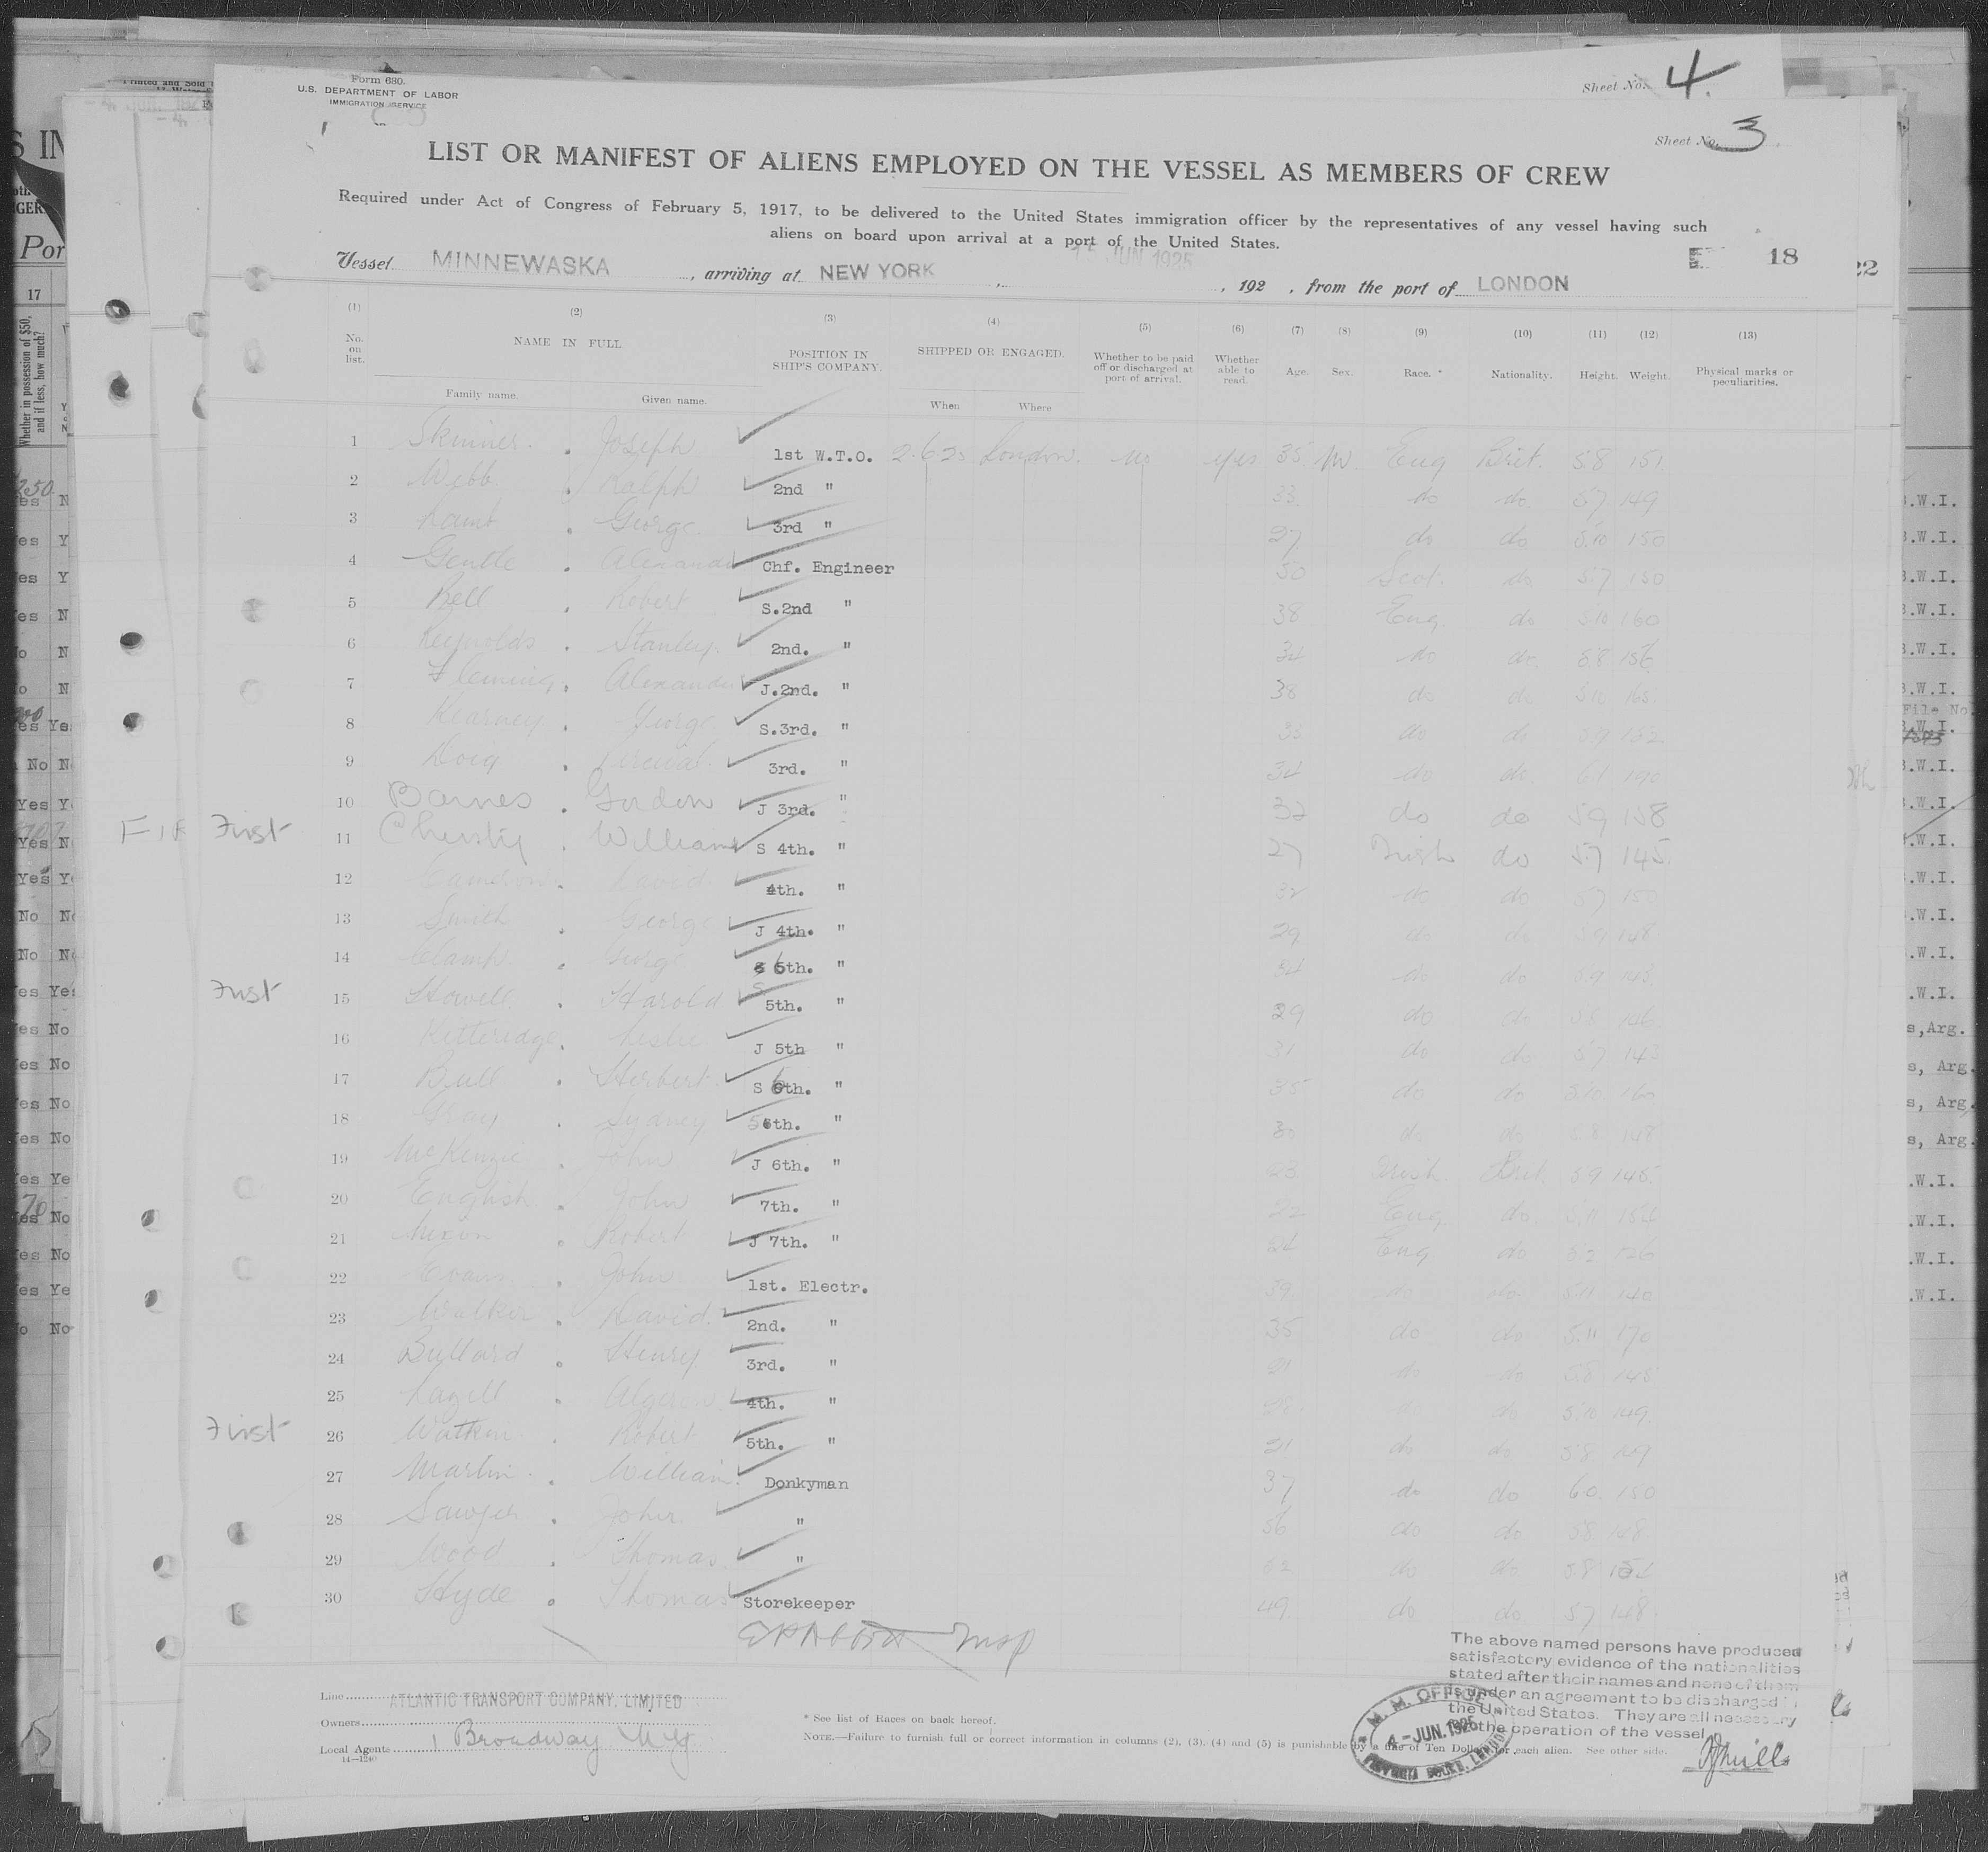 Form 680.
U.S. DEPARTMENT OF LABOR
IMMIGRATION SERVICE
Sheet No. 4.
Sheet No. 3
LIST OR MANIFEST OF ALIENS EMPLOYED ON THE VESSEL AS MEMBERS OF CREW
Required under Act of Congress of February 5, 1917, to be delivered to the United States immigration officer by the representatives of any vessel having such
aliens on board upon arrival at a port of the United States.
15 JUN 1925
18
22
Vessel MINNEWASKA , arriving at NEW YORK , 192 , from the port of LONDON
(1) (2) (3) (4) (5) (6) (7) (8) (9) (10) (11) (12) (13)
No. on list. NAME IN FULL POSITION IN SHIP'S COMPANY. SHIPPED OR ENGAGED. Whether to be paid off or discharged at port of arrival. Whether able to read. Age. Sex. Race. * Nationality. Height. Weight. Physical marks or peculiarities.
Family name. Given name. When Where
1 Skinner Joseph 1st W.T.O. 2.6.25 London. no yes 35 M Eng Brit. 5.8 151
2 Webb Ralph 2nd " 33 do do 5.7 149
3 Lamb George 3rd " 27 do do 5.10 150
4 Gentle Chf. Engineer 50 Scot. do 5.7 150
5 Bell Robert S.2nd " 38 Eng. do 5.10 160
6 Reynolds Stanley 2nd. " 34 do do 5.8 156
7 Fleming Alexander J.2nd. " 38 do do 5.10 165
8 Kearney George S.3rd. " 33 do do 5.9 152
9 Doig Percival 3rd. " 34 do do 6.1 190
10 Barnes Gordon J 3rd. " 32 do do 5.9 158
First 11 Christy William S 4th. " 27 Irish do 5.7 145
12 Cameron David 4th. " 32 do do 5.7 150
13 Smith George J 4th. " 29 do do 5.9 148
14 Clamp George 5th. " 34 do do 5.9 145
First 15 Howell Harold 5th. " 29 do do 5.8 146
16 Kitteridge Leslie J 5th " 31 do do 5.7 143
17 Bull Herbert S 6th. " 35 do do 5.10 160
18 Gray Sydney 6th. " 30 do do 5.8 148
19 McKenzie John J 6th. " 28 Irish Brit. 5.9 145
20 English John 7th. " 22 Eng. do 5.11
21 Nixon Robert J 7th. " 24 Eng do 5.2 126
22 Evans John 1st. Electr. 39 do do 5.11 140
23 Walker David 2nd. " 35 do do 5.11 170
24 Bullard Henry 3rd. " 21 do do 5.8 145
25 Lazell 4th. " do do 5.10 149
First 26 Watkin Robert 5th. " 21 do do 5.8 149
27 Martin William Donkyman 37 do do 6.0 150
28 Sawyer John " 56 do do 5.8 148
29 Wood Thomas " 52 do do 5.8
30 Hyde Thomas Storekeeper 49 do do 5.7 148
Insp
The above named persons have produced
satisfactory evidence of the nationalities
stated after their names and none of them
is under an agreement to be discharged in
the United States. They are all necessary
to the operation of the vessel.
M. M. OFFICE
4 - JUN. 1925
Line ATLANTIC TRANSPORT COMPANY, LIMITED
Owners
Local Agents 1 Broadway N.Y.
14-1240
* See list of Races on back hereof.
NOTE.—Failure to furnish full or correct information in columns (2), (3), (4) and (5) is punishable by a fine of Ten Dollars for each alien. See other side.